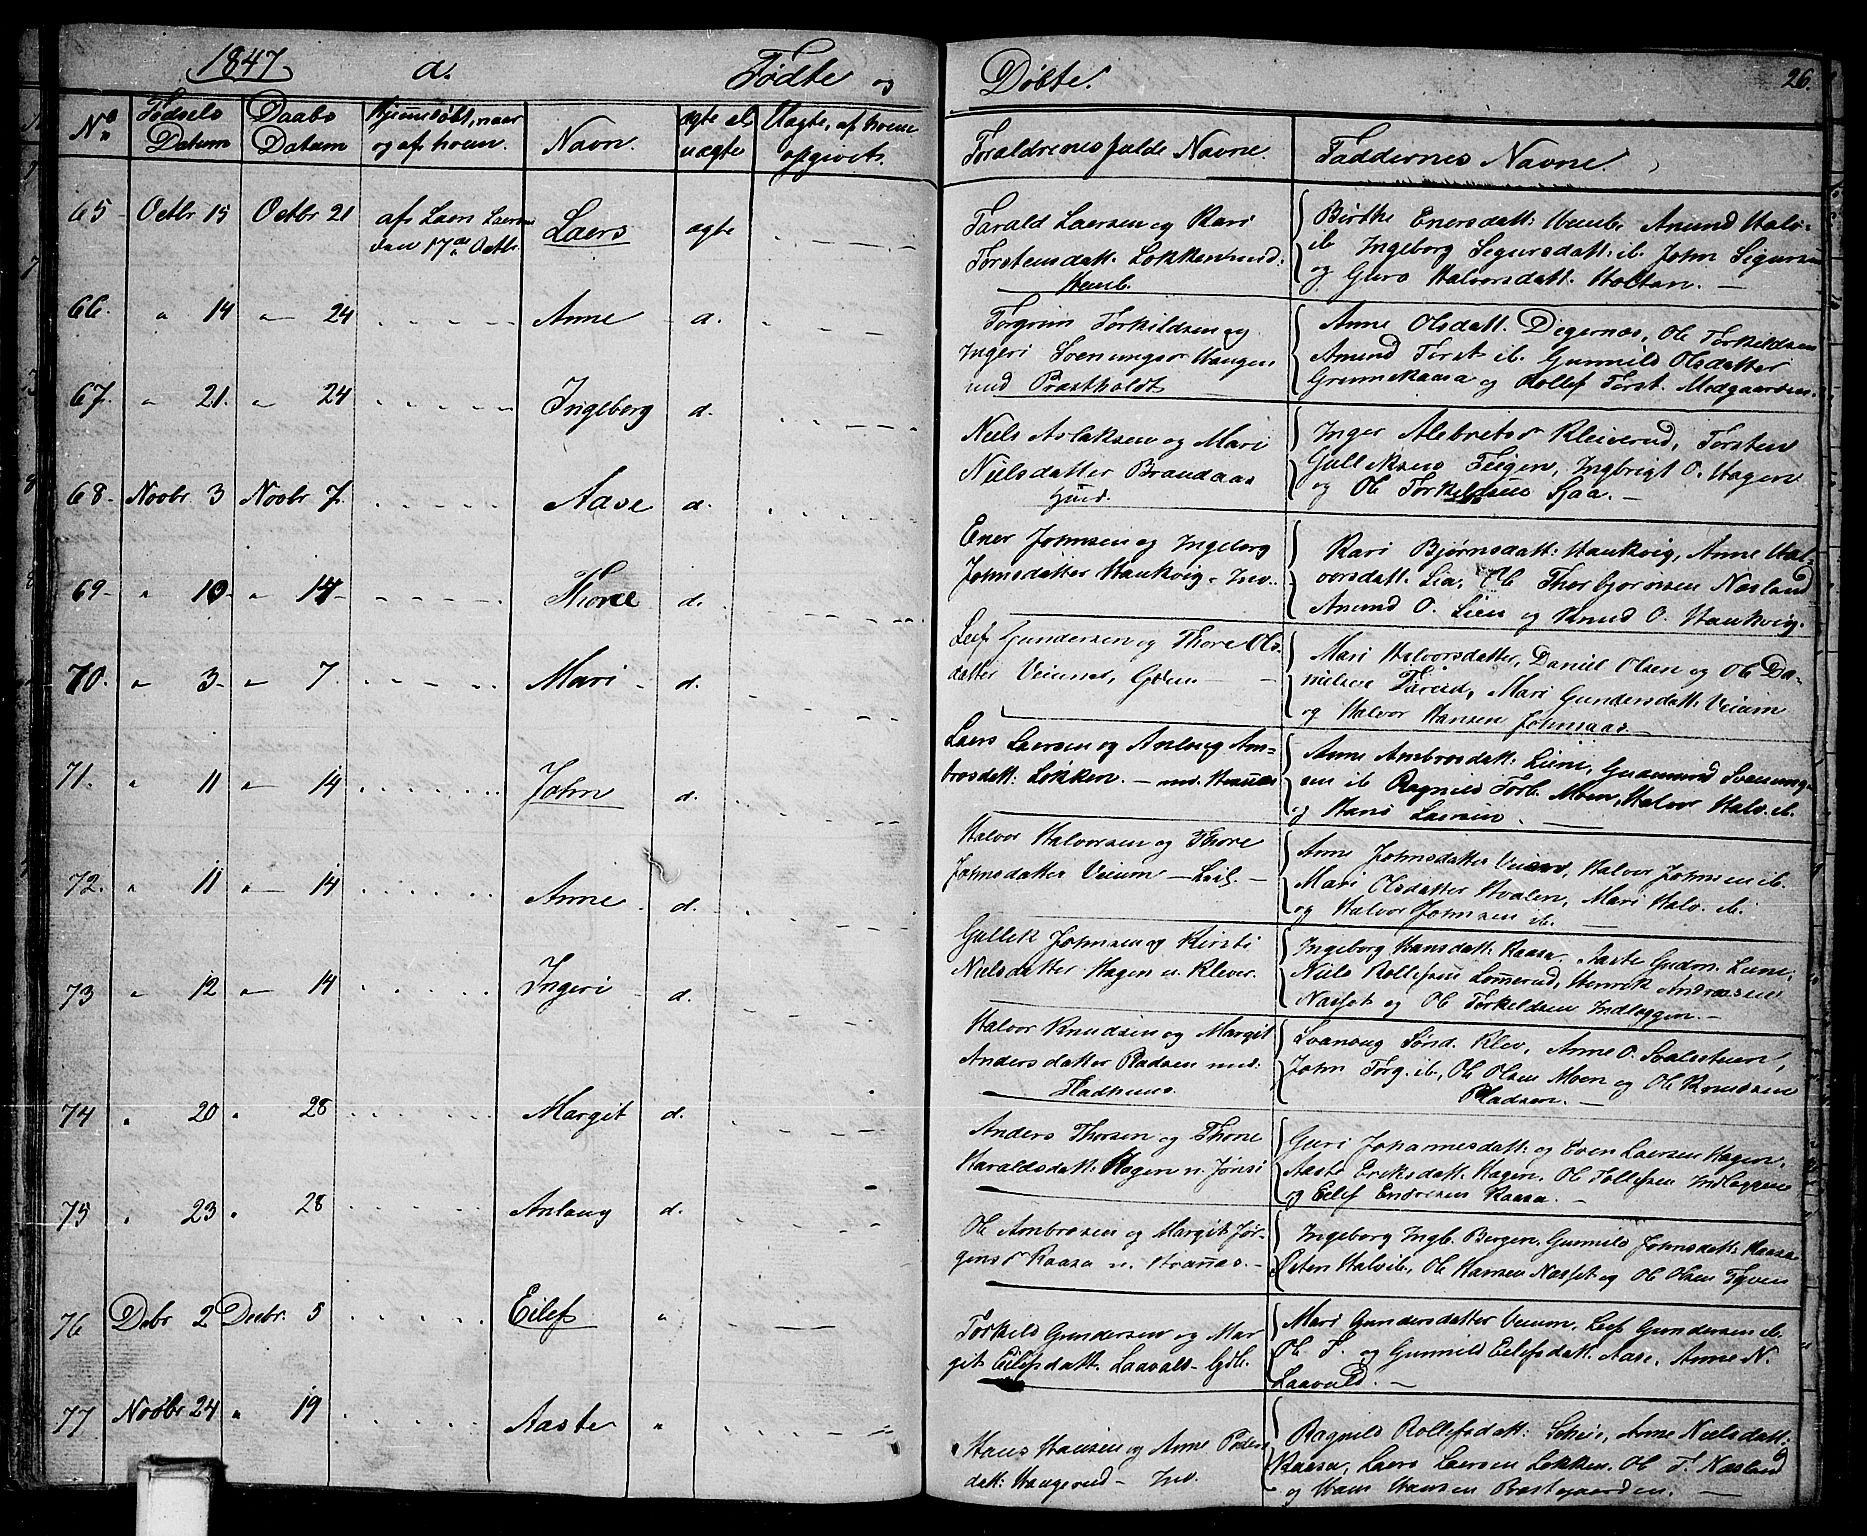 1847 a. Fødte og Døbte. 26.
No Fødsels Datum Daabs Datum Hjemmedøbt, naar og af hvem. Navn. ægte el. uægte Uægte, af hvem opgivet. Forældrenes fulde Navne. Faddernes Navne.
65 Octbr 15 Octbr 21 af Laers Laersen den 17de Octbr. Laers ægte
Tarald Laersen og Kari
Torstensdatt. Løkken
Birthe Enersdatt: Amund Halv.
ib. Ingeborg Sigursdatt: ib. John Sigursen
og Guro Halvorsdatt. Holtan. —
66. " 14 " 24 Anne d.
Torgrim Torkildsen og
Ingeri Svenungsdr Haugen
und Præstholdt
Anne Olsdatt. Digernæs, Ole Torkildsen
Amund Torst. ib. Gunnild Olsdatter
Grennekaasa og Rollef Torst. Medgaarden.
67. " 21. " 24 Ingeborg d.
Niels Aslaksen og Mari
Nielsdatter Brandaas
Inger Alebretsdr Kleiverud, Torsten
Gulleksens Teigen, Ingbrigt O. Hagen
og Ole Torkeldsens Sjaa. —
68. Novbr 3 Novbr 7. Aase d.
Ener Johnsen og Ingeborg
Johnsdatter Haukvig - Inv.
Kari Bjørnsdatt: Haukvig, Anne Hal-
vorsdatt. Lia, Ole Thorbjørnsen Næsland
Amund O. Lien og Knud O. Haukvig.
69. " 10. " 14 Thore d.
Leif Gundersen og Thore Ols-
datter Veium, Gdm —
Mari Halvorsdatter, Daniel Olsen og Ole Da-
nielsen Tareid, Mari Gundersdatt. Veium
og Halvor Hansen Johnsaas —
70. " 3. " 7. Mari d.
Laers Laersen og Anlaug Am-
brosdatt: Løkken. — und.
Anne Ambrosdatt: Liene, Gudmund Svenung-
sen ib. Ragnild Torb. Moen, Halvor Halv. ib.
og Hans Laersen. —
71. " 11 " 14 John d.
Halvor Halvorsen og Thore
Johnsdatter Veium —
Anne Johnsdatter Veium, Halvor Johnsen ib.
Mari Olsdatter Hvalen, Mari Halv. ib.
og Halvor Johnsen ib. —
72. " 11 " 14 Anne d.
Gullek Johnsen og Kirsti
Nielsdatter Hagen u. Klever.
Ingeborg Hansdatt: Kaasa, Aaste Gudm. Liene,
Niels Rollefsens Lomerud, Henrik Andreasen
Næsset og Ole Torkeldsen Indlæggen. —
73 " 12 " 14 Ingeri d.
Halvor Knudsen og Margit
Andersdatter Pladsen und:
Fladhuus.
Svanaug Sønd. Klev, Anne O. Svalestuen,
John Torg. ib., Ole Olsen Moen og Ole Knudsen
Pladsen. —
74 " 20 " 28 Margit d.
Anders Thorsen og Thone
Haraldsdatt: Hagen u. Jønsi
Guri Johannesdatt: og Even Laersen Hagen,
Aaste Eriksdatt. Hagen, Ole Tollefsen Indlæggen
og Eilef Endresen Kaasa. —
75 " 23 " 28 Anlaug d.
Ole Ambrosen og Margit Jør-
gensdr Kaasa u.
Ingeborg Ingb. Bergen, Gunnild Johnsdatt: Kaasa
Peter Halv. ib., Ole Hansen Næsset og Ole Olsen Tyven
76 Debr 2 Decbr. 5 Eilef "
Torkild Gundersen og Mar-
git Eilefsdatt. Laavald - Gdb.
Mari Gundersdatter Veium, Leif Gundersen ib.
Ole T. og Gunnild Eilefsdatt. Aase, Anne N.
Laavald. —
77 Novbr 24 " 19 Aaste "
Hans Hansen og Anne Peders-
datt: Haugerud — Inv.
Ragnild Rollefsdatt: Scheie, Anne Nielsdatt:
Kaasa, Laers Laersen Løkken. Ole T. Næsland
og Hans Hansen Præstegaarden. —